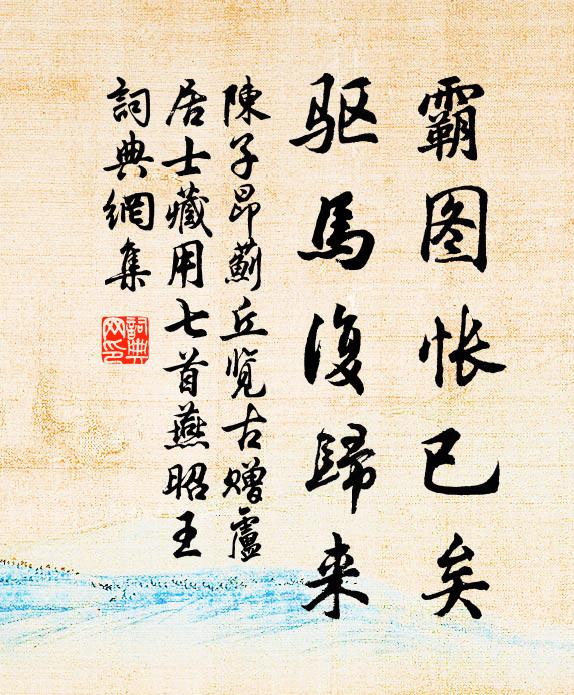 霸图怅已矣
驱馬復歸来
陳子昂薊丘览古赠盧
居士藏用七首燕昭王
詞典網集
詞典网印